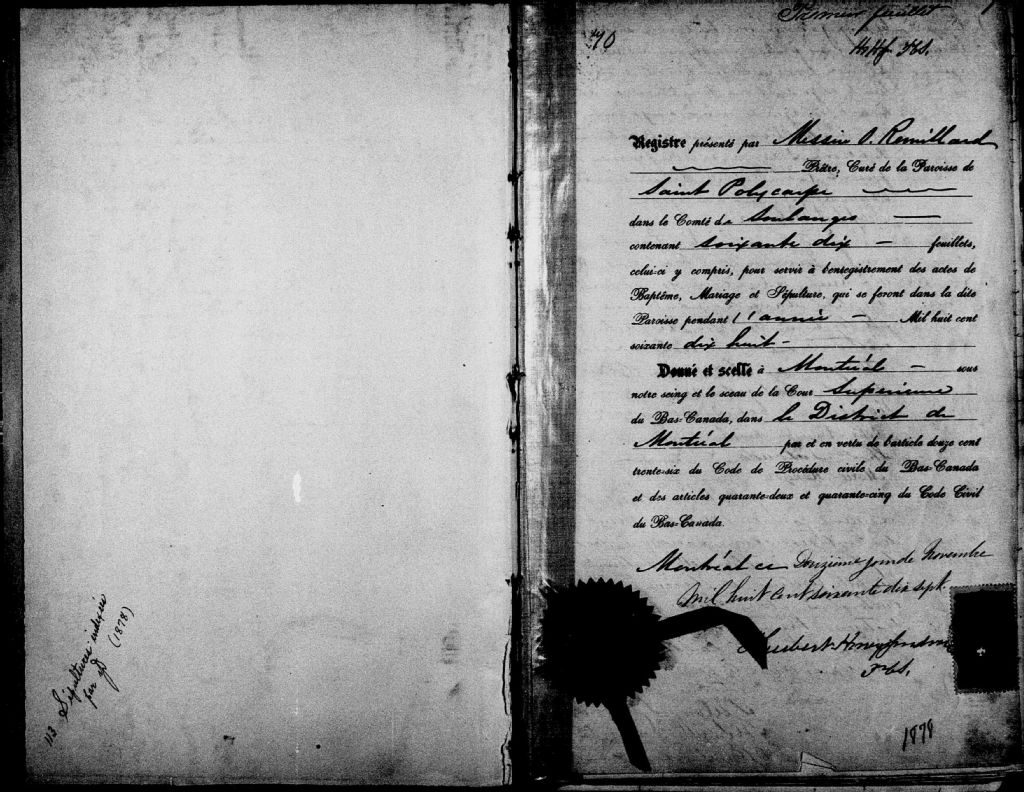 Sépultures indexées
par
(1878)
113
Premier feuillet
70
Registre présenté par Messire O. Remillard
Prêtre, Curé de la Paroisse de
Saint Polycarpe
dans le Comté de Soulanges —
contenant soixante dix — feuillets,
celui-ci y compris, pour servir à l'enregistrement des actes de
Baptême, Mariage et Sépulture, qui se feront dans la dite
Paroisse pendant l'année — Mil huit cent
soixante dix huit —
Donné et scellé à Montréal — sous
notre seing et le sceau de la Cour Supérieure
du Bas-Canada, dans le District de
Montréal par et en vertu de l'article douze cent
trente-six du Code de Procédure civile du Bas-Canada
et des articles quarante-deux et quarante-cinq du Code Civil
du Bas-Canada.
Montréal ce Douzième jour de Novembre
Mil huit cent soixante dix sept.
1878